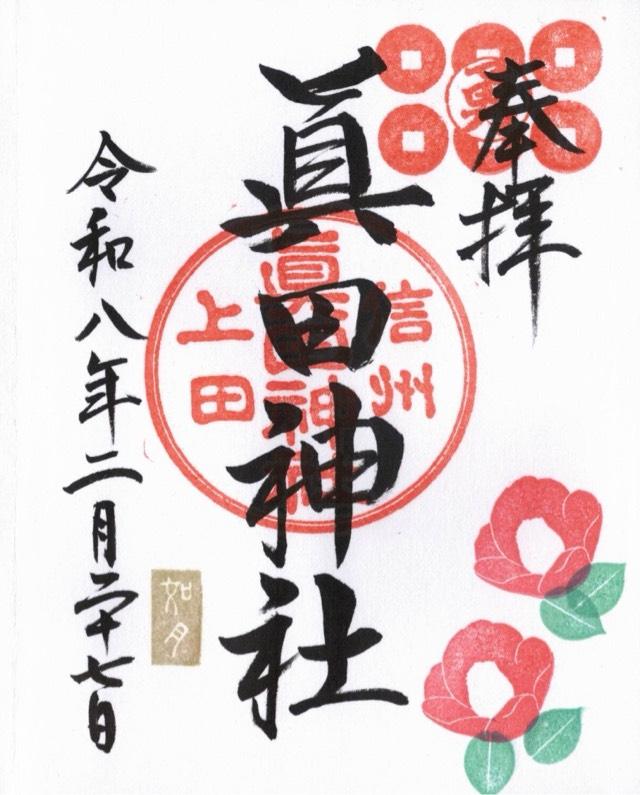 奉拝
眞田神社
信州
眞田神社
上田
令和八年二月二十七日
如月